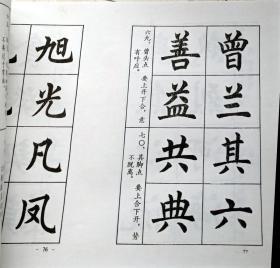 旭光凡凤
- 76 -
曾兰其六
善益共典
六九、曾头点 要上开下合，意
有呼应。
七〇、其脚点 要上合下开，势
不脱离。
77